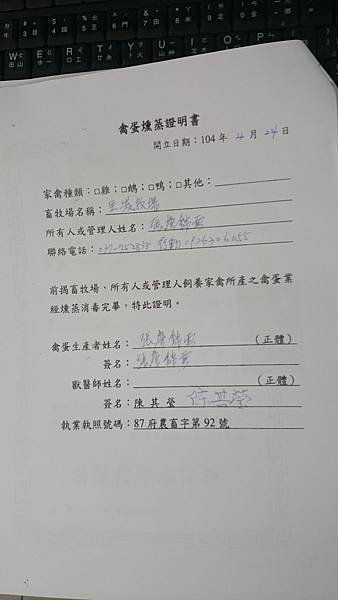 禽蛋燻蒸證明書
開立日期：104 年 4 月 24 日
家禽種類：□雞；□鵝；□鴨；□其他：
畜牧場名稱：牧場
所有人或管理人姓名：張 錦雲
聯絡電話：037-752838 行動 0926306055
前揭畜牧場、所有人或管理人飼養家禽所產之禽蛋業
經燻蒸消毒完畢，特此證明。
禽蛋生產者姓名：張 錦雲 （正體）
簽名：張 錦雲
獸醫師姓名： （正體）
簽名：陳 其 瑩 陳其瑩
執業執照號碼：87 府農畜字第 92 號